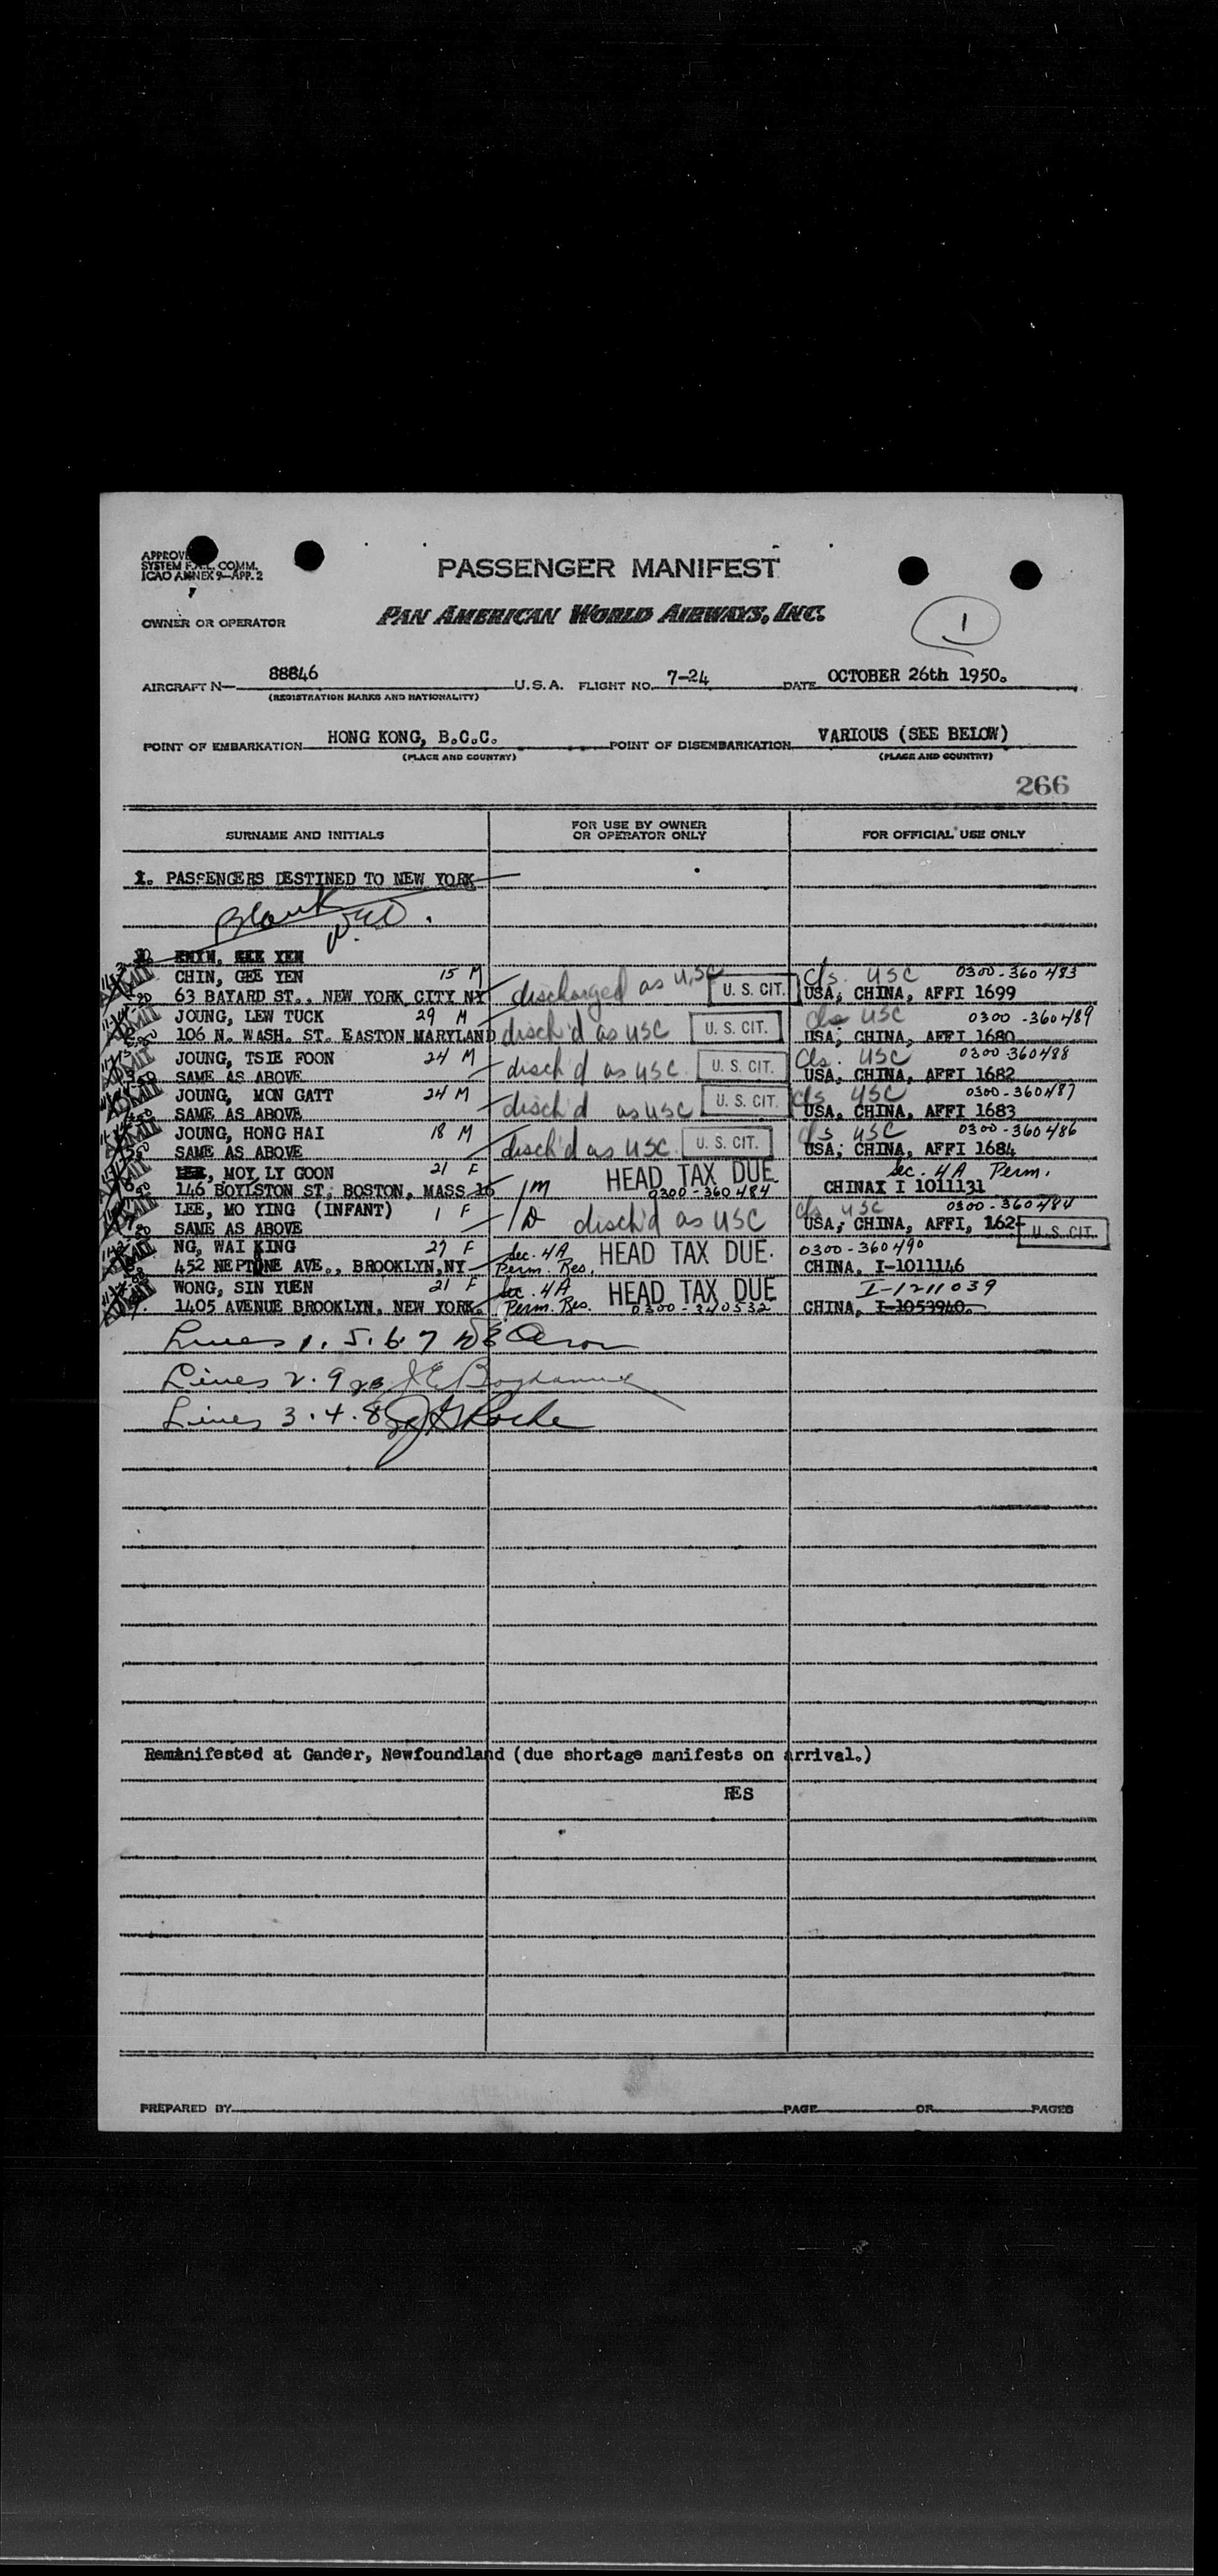 SYSTEM F.A.L. COMM.
ICAO ANNEX 9—APP. 2
PASSENGER MANIFEST
OWNER OR OPERATOR PAN AMERICAN WORLD AIRWAYS, INC.
1
AIRCRAFT N— 88846 U.S.A. FLIGHT NO. 7-24 DATE OCTOBER 26th 1950.
(REGISTRATION MARKS AND NATIONALITY)
POINT OF EMBARKATION HONG KONG, B.C.C. POINT OF DISEMBARKATION VARIOUS (SEE BELOW)
(PLACE AND COUNTRY) (PLACE AND COUNTRY)
266
SURNAME AND INITIALS FOR USE BY OWNER OR OPERATOR ONLY FOR OFFICIAL USE ONLY
1. PASSENGERS DESTINED TO NEW YORK
Blank
CHIN, GEE YEN 15 M discharged as USC U. S. CIT. cls. USC 0300-360483
63 BAYARD ST., NEW YORK CITY NY USA, CHINA, AFFI 1699
JOUNG, LEW TUCK 29 M cls USC 0300-360489
106 N. WASH. ST. EASTON MARYLAND disch'd as USC U. S. CIT. USA, CHINA, AFFI 1680
JOUNG, TSIE FOON 24 M cls. USC 0300-360488
SAME AS ABOVE disch'd as USC U. S. CIT. USA, CHINA, AFFI 1682
JOUNG, MON GATT 24 M cls USC 0300-360487
SAME AS ABOVE disch'd as USC U. S. CIT. USA, CHINA, AFFI 1683
JOUNG, HONG HAI 18 M cls USC 0300-360486
SAME AS ABOVE disch'd as USC U. S. CIT. USA, CHINA, AFFI 1684
LEE, MOY LY GOON 21 F HEAD TAX DUE. Sec. 4A Perm.
146 BOYLSTON ST, BOSTON, MASS 1M 0300-360484 CHINAX I 1011131
LEE, MO YING (INFANT) 1 F cls USC 0300-360484
SAME AS ABOVE disch'd as USC USA, CHINA, AFFI, 162 U. S. CIT.
NG, WAI KING 27 F Sec. 4A HEAD TAX DUE. 0300-360490
452 NEPTUNE AVE., BROOKLYN, NY Perm. Res. CHINA, I-1011146
WONG, SIN YUEN 21 F Sec. 4A HEAD TAX DUE I-1211039
1405 AVENUE BROOKLYN, NEW YORK. Perm. Res. 0300-340532 CHINA, I-1053940.
Lines 1. 5. 6. 7
Lines 2. 9
Lines 3. 4. 8 Roche
Remanifested at Gander, Newfoundland (due shortage manifests on arrival.)
RES
PREPARED BY PAGE OR PAGES